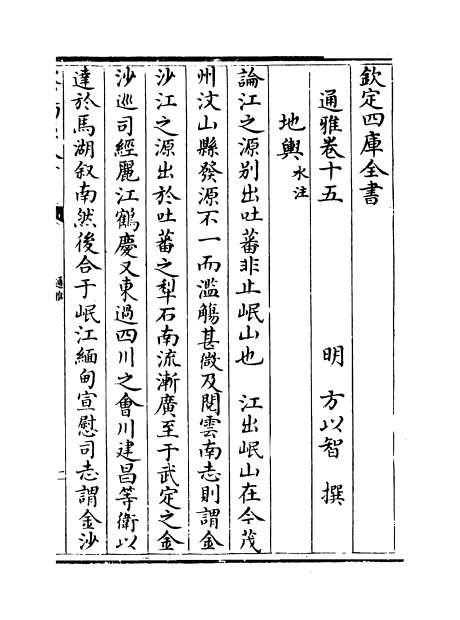 欽定四庫全書
通雅卷十五 明 方以智 撰
地輿 水注
論江之源别出吐蕃非止岷山也 江出岷山在今茂
州汶山縣發源不一而濫觴甚微及閱雲南志則謂金
沙江之源出於吐蕃之犁石南流漸廣至于武定之金
沙巡司經麗江鶴慶又東過四川之會川建昌等衛以
達於馬湖叙南然後合于岷江緬甸宣慰司志謂金沙
通雅